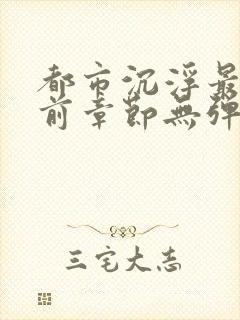 都市沉浮最
前章節無彈
三宅大志